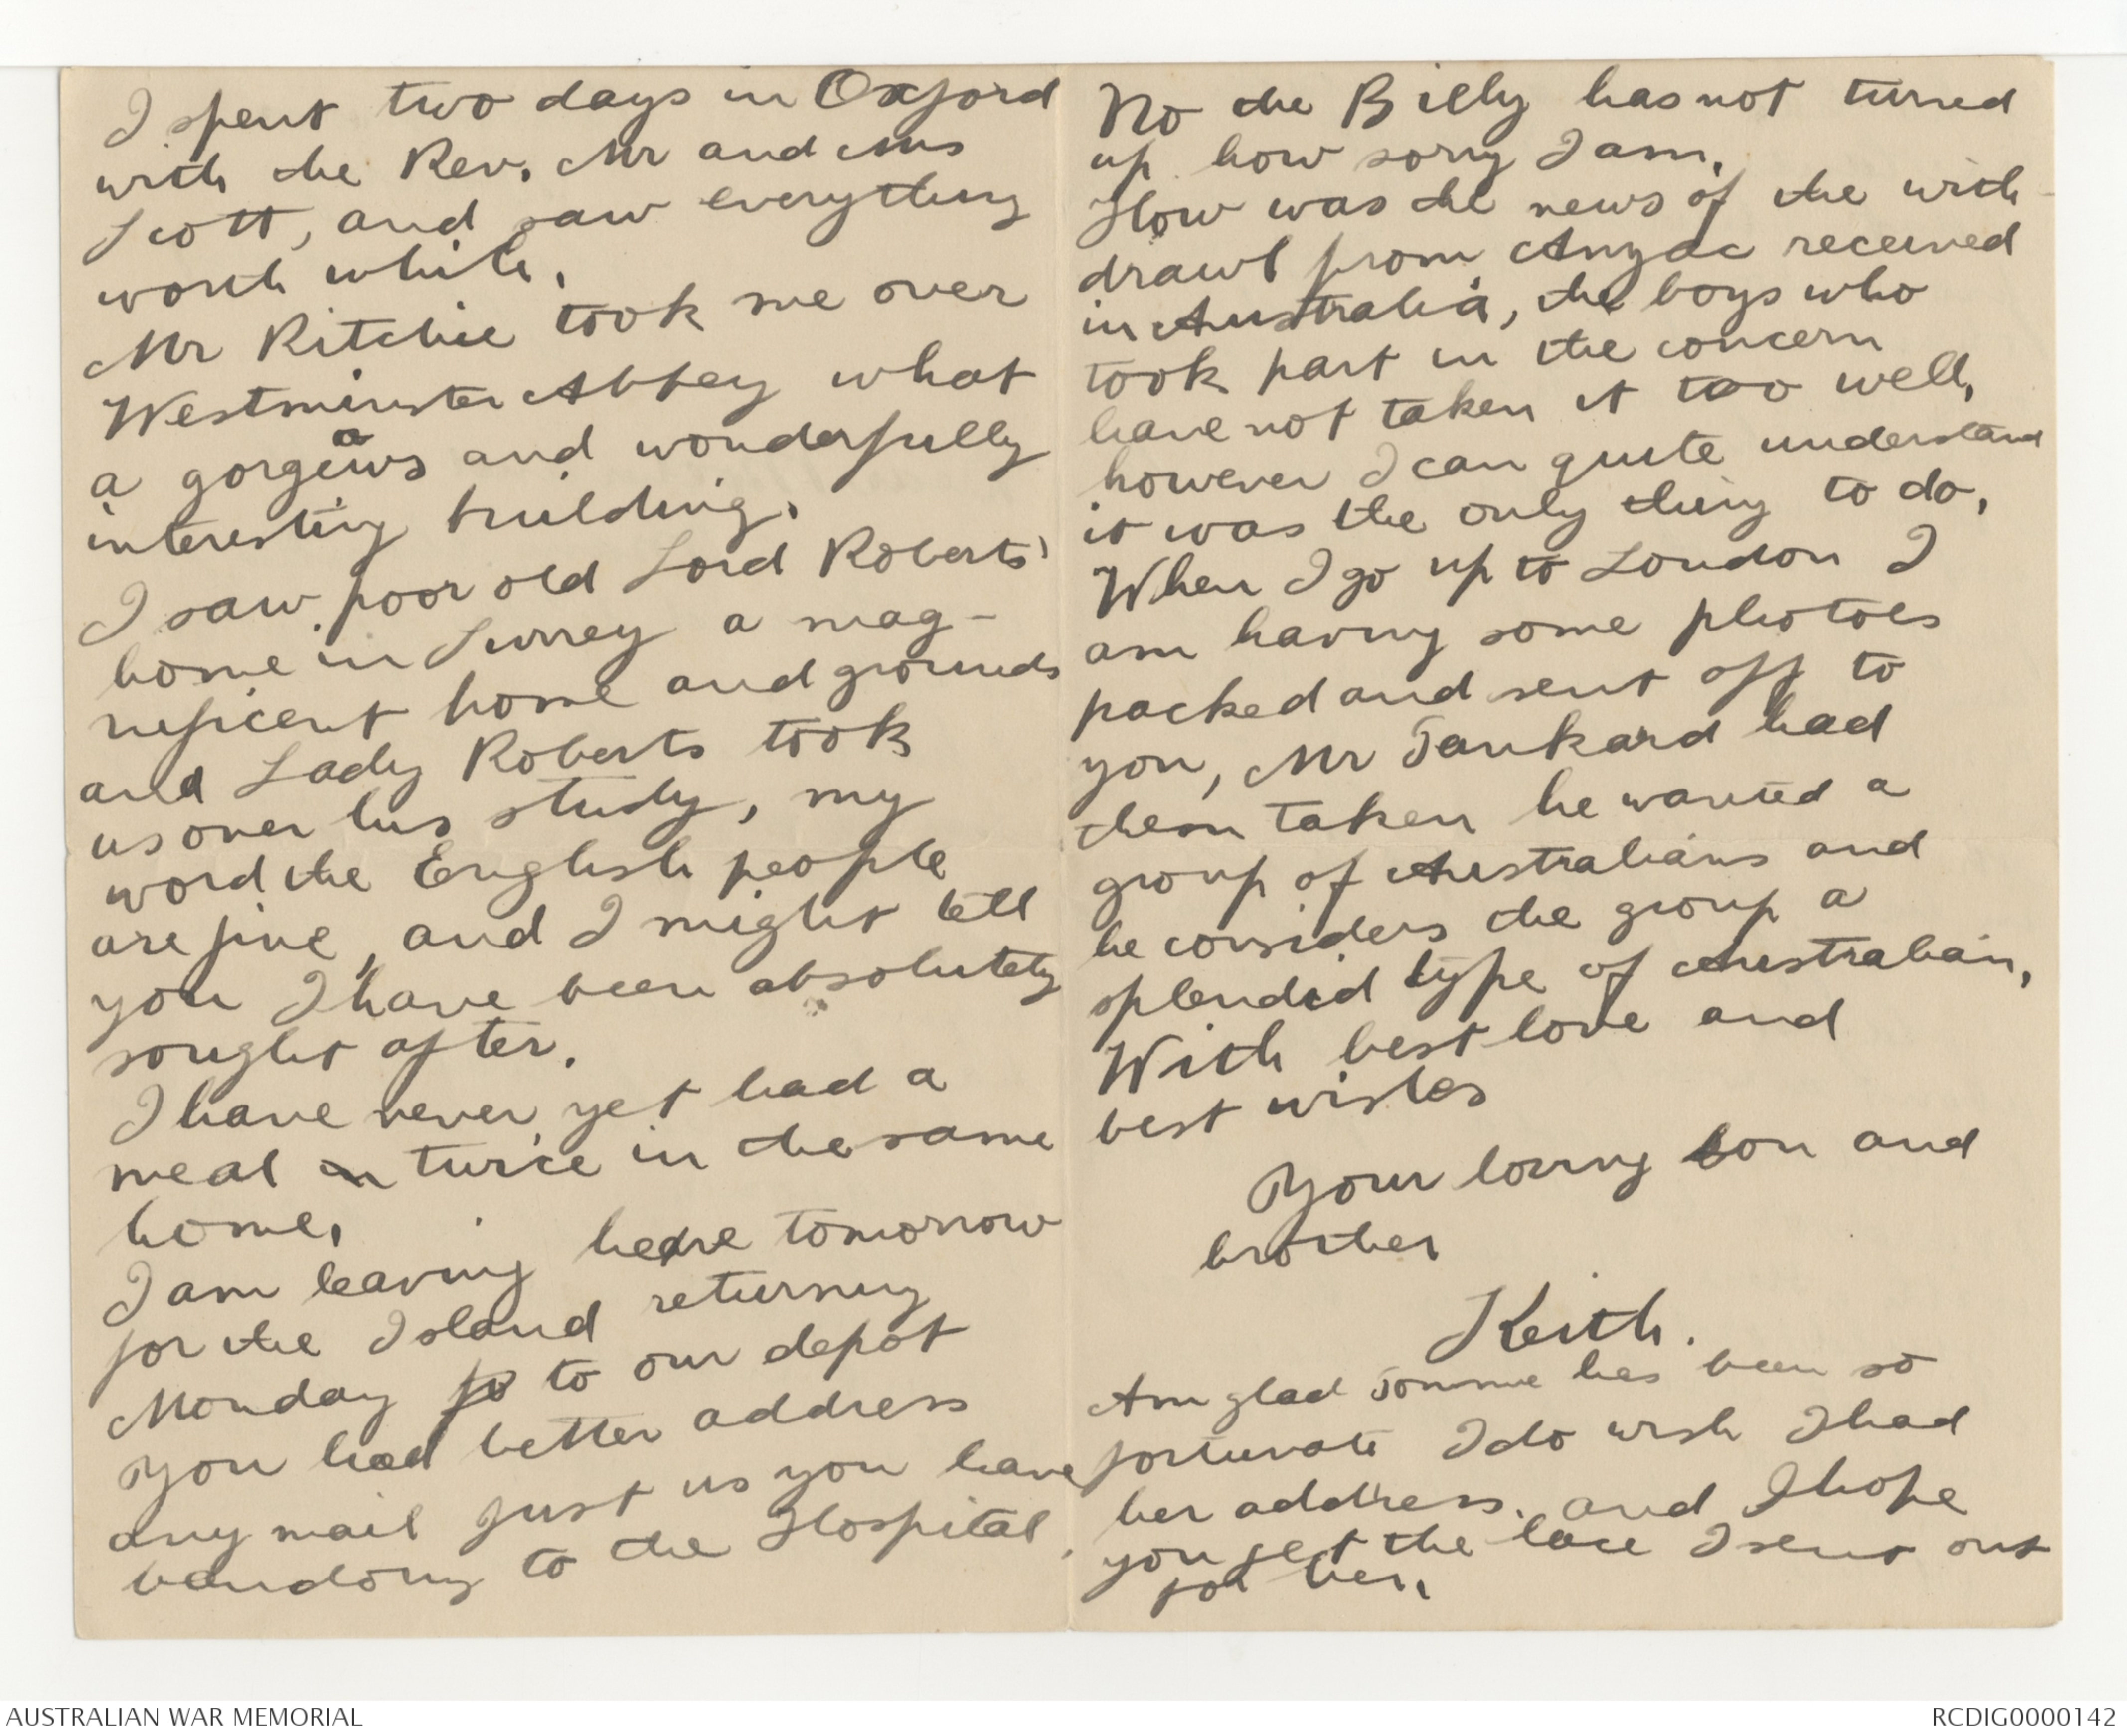 I spent two days in Oxford
with the Rev. Mr and Mrs
Scott, and saw everything
worth while.
Mr Ritchie took me over
Westminster Abbey what
a gorgeous and wonderfully
interesting building.
I saw poor old Lord Roberts'
home in Surrey a mag-
nificent home and grounds
and Lady Roberts took
us over his study, my
word the English people
are fine, and I might tell
you I have been absolutely
sought after.
I have never yet had a
meal twice in the same
home.
I am leaving here tomorrow
for the Island returning
Monday to to our depot
You had better address
any mail just us you have
to the Hospital.
No the Billy has not turned
up how sorry I am.
How was the news of the with-
drawl from Anzac received
in Australia, the boys who
took part in the concern
have not taken it too well,
however I can quite understand
it was the only thing to do.
When I go up to London I
am having some photoes
packed and sent off to
you, Mr Tankard had
them taken he wanted a
group of Australians and
he considers the group a
splendid type of Australian.
With best love and
best wishes
Your loving son and
brother
Keith.
Am glad Tommie has been so
fortunate I do wish I had
her address. and I hope
you get the lace I sent out
for her.
AUSTRALIAN WAR MEMORIAL
RCDIG0000142